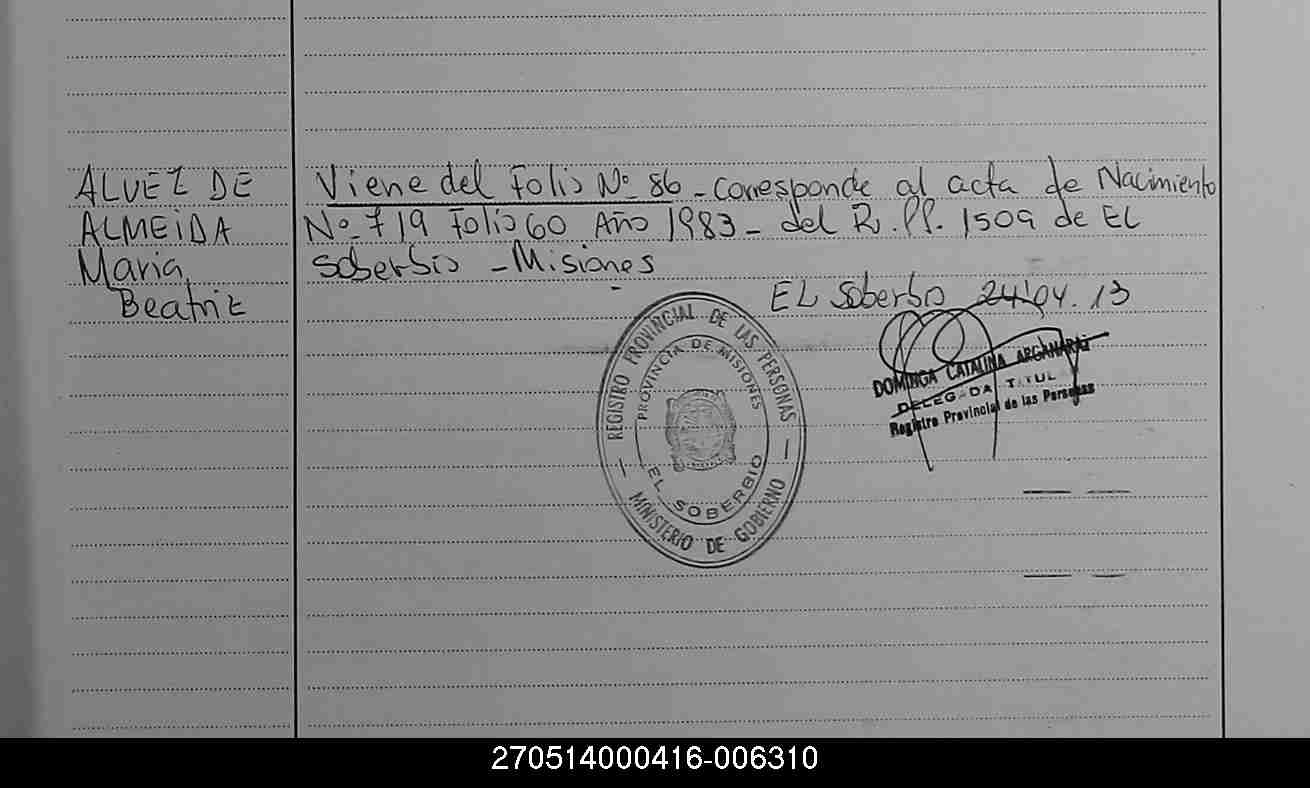 ALVEZ DE
ALMEIDA
Maria
Beatriz
Viene del Folio Nº 86 - Corresponde al acta de Nacimiento
Nº 719 Folio 60 Año 1983 - del R. PP. 1509 de EL
Soberbio - Misiones
EL Soberbio 24'04.13
REGISTRO PROVINCIAL DE LAS PERSONAS
PROVINCIA DE MISIONES
EL SOBERBIO
MINISTERIO DE GOBIERNO
DOMINGA CATALINA ARGAÑARAZ
DELEGADA TITUL
Registro Provincial de las Personas
270514000416-006310